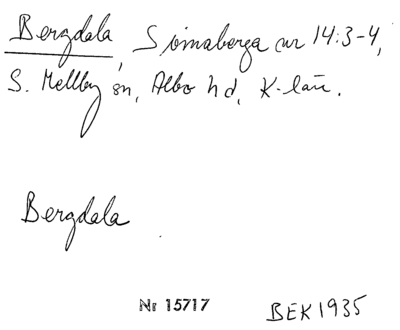 Bergdala, Simaberga nr 14:3-4,
S. Mellby sn, Albo hd, K-län.
Bergdala
Nr 15717
BEK 1935